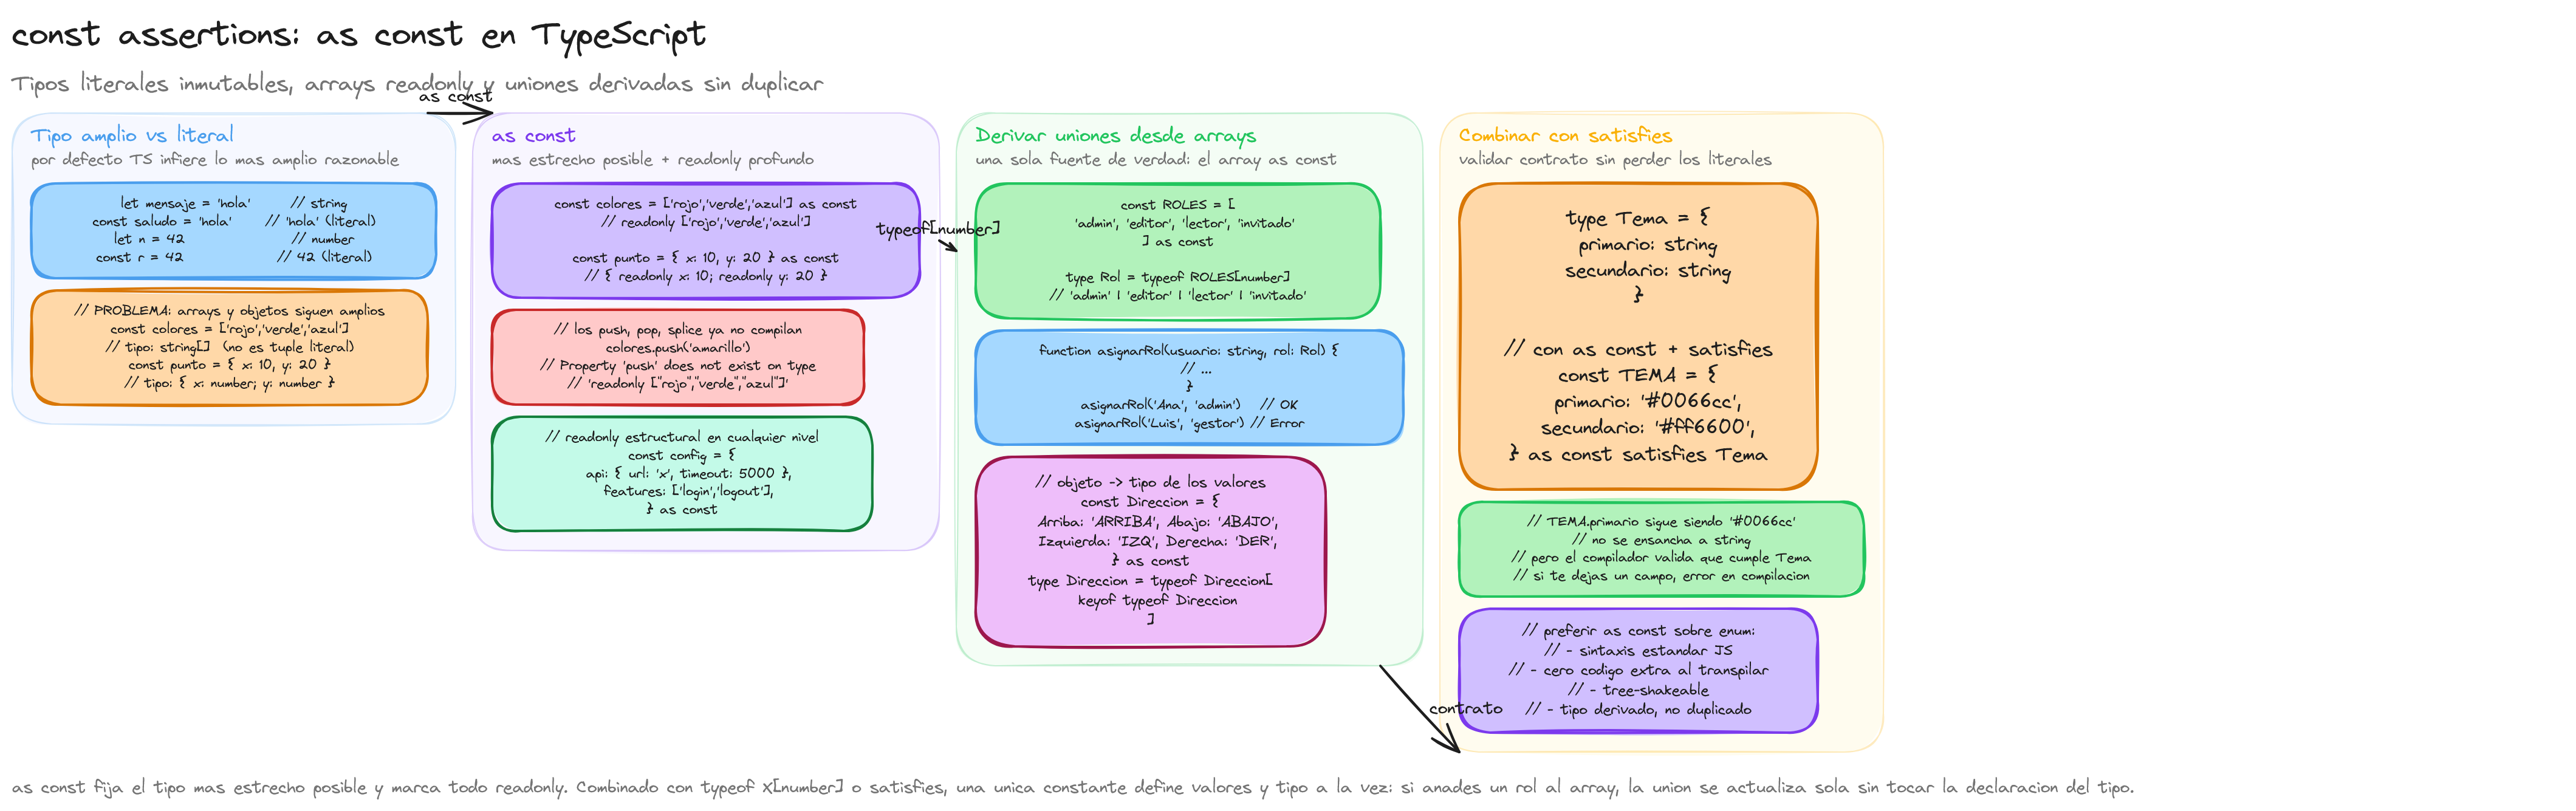 const assertions: as const en TypeScript
Tipos literales inmutables, arrays readonly y uniones derivadas sin duplicar
as const
Tipo amplio vs literal
por defecto TS infiere lo mas amplio razonable
let mensaje = 'hola' // string
const saludo = 'hola' // 'hola' (literal)
let n = 42 // number
const r = 42 // 42 (literal)
// PROBLEMA: arrays y objetos siguen amplios
const colores = ['rojo','verde','azul']
// tipo: string[] (no es tuple literal)
const punto = { x: 10, y: 20 }
// tipo: { x: number; y: number }
as const
mas estrecho posible + readonly profundo
const colores = ['rojo','verde','azul'] as const
// readonly ['rojo','verde','azul']
const punto = { x: 10, y: 20 } as const
// { readonly x: 10; readonly y: 20 }
// los push, pop, splice ya no compilan
colores.push('amarillo')
// Property 'push' does not exist on type
// 'readonly ["rojo","verde","azul"]'
// readonly estructural en cualquier nivel
const config = {
api: { url: 'x', timeout: 5000 },
features: ['login','logout'],
} as const
typeof[number]
Derivar uniones desde arrays
una sola fuente de verdad: el array as const
const ROLES = [
'admin', 'editor', 'lector', 'invitado'
] as const
type Rol = typeof ROLES[number]
// 'admin' | 'editor' | 'lector' | 'invitado'
function asignarRol(usuario: string, rol: Rol) {
// ...
}
asignarRol('Ana', 'admin') // OK
asignarRol('Luis', 'gestor') // Error
// objeto -> tipo de los valores
const Direccion = {
Arriba: 'ARRIBA', Abajo: 'ABAJO',
Izquierda: 'IZQ', Derecha: 'DER',
} as const
type Direccion = typeof Direccion[
keyof typeof Direccion
]
contrato
Combinar con satisfies
validar contrato sin perder los literales
type Tema = {
primario: string
secundario: string
}
// con as const + satisfies
const TEMA = {
primario: '#0066cc',
secundario: '#ff6600',
} as const satisfies Tema
// TEMA.primario sigue siendo '#0066cc'
// no se ensancha a string
// pero el compilador valida que cumple Tema
// si te dejas un campo, error en compilacion
// preferir as const sobre enum:
// - sintaxis estandar JS
// - cero codigo extra al transpilar
// - tree-shakeable
// - tipo derivado, no duplicado
as const fija el tipo mas estrecho posible y marca todo readonly. Combinado con typeof X[number] o satisfies, una unica constante define valores y tipo a la vez: si anades un rol al array, la union se actualiza sola sin tocar la declaracion del tipo.